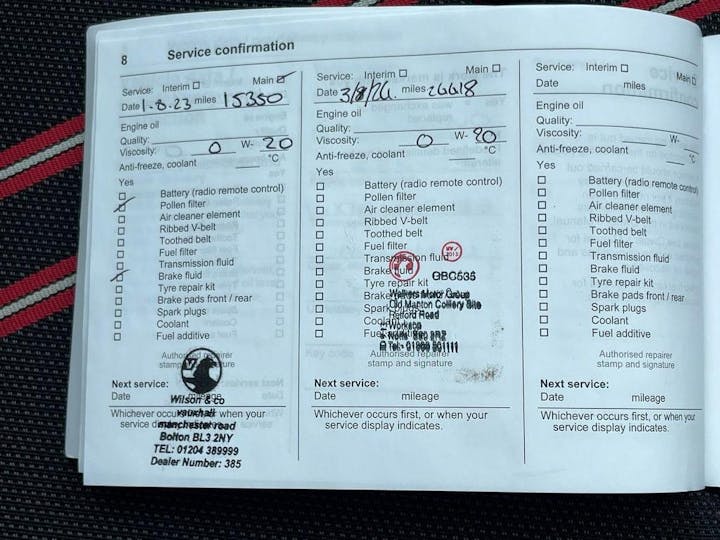 8 Service confirmation
Service: Interim ☐ Main ☑
Date 1-8-23 miles 15350
Engine oil
Quality:
Viscosity: 0 W- 20
Anti-freeze, coolant °C
Yes
☐ Battery (radio remote control)
☑ Pollen filter
☐ Air cleaner element
☐ Ribbed V-belt
☐ Toothed belt
☐ Fuel filter
☐ Transmission fluid
☑ Brake fluid
☐ Tyre repair kit
☐ Brake pads front / rear
☐ Spark plugs
☐ Coolant
☐ Fuel additive
Authorised repairer
stamp and signature
Next service:
Date mileage
Whichever occurs first, or when your
service display indicates.
Wilson & co
vauxhall
manchester road
Bolton BL3 2NY
TEL: 01204 389999
Dealer Number: 385
Service: Interim ☐ Main ☐
Date miles 26618
Engine oil
Quality:
Viscosity: 0 W-
Anti-freeze, coolant °C
Yes
☐ Battery (radio remote control)
☐ Pollen filter
☐ Air cleaner element
☐ Ribbed V-belt
☐ Toothed belt
☐ Fuel filter
☐ Transmission fluid
☐ Brake fluid
☐ Tyre repair kit
☐ Brake
☐ Spark
☐ Coolant
☐ Fuel
GBC535
Motor Group
Old Manton Colliery Site
Retford Road
Worksop
Authorised repairer
stamp and signature
Next service:
Date mileage
Whichever occurs first, or when your
service display indicates.
Service: Interim ☐ Main ☐
Date miles
Engine oil
Quality:
Viscosity: W-
Anti-freeze, coolant °C
Yes
☐ Battery (radio remote control)
☐ Pollen filter
☐ Air cleaner element
☐ Ribbed V-belt
☐ Toothed belt
☐ Fuel filter
☐ Transmission fluid
☐ Brake fluid
☐ Tyre repair kit
☐ Brake pads front / rear
☐ Spark plugs
☐ Coolant
☐ Fuel additive
Authorised repairer
stamp and signature
Next service:
Date mileage
Whichever occurs first, or when your
service display indicates.